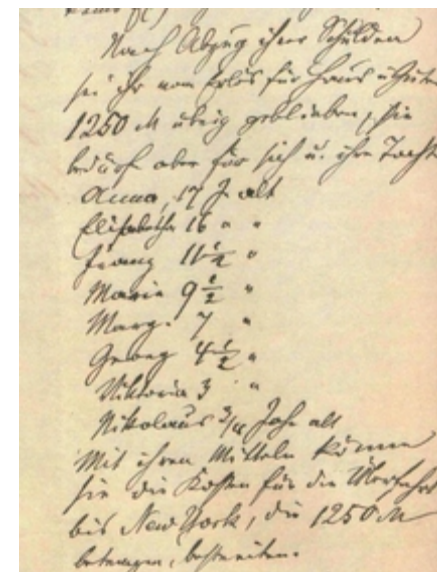 Nach Abzug ihrer Schulden
sei ihr vom Erlös für Haus u. Güter
1250 M übrig geblieben, sie
bedürfe aber für sich u. ihre Töcht
Anna, 17 J. alt
Elisabetha 16 " "
Franz 11 1/2 "
Maria 9 1/2 "
Marg. 7 "
Georg 4 1/2 "
Viktoria 3 "
Nikolaus Jahr alt
Mit ihren Mitteln könne
sie die Kosten für die Überfahrt
bis New York, die 1250 M
betragen, bestreiten.